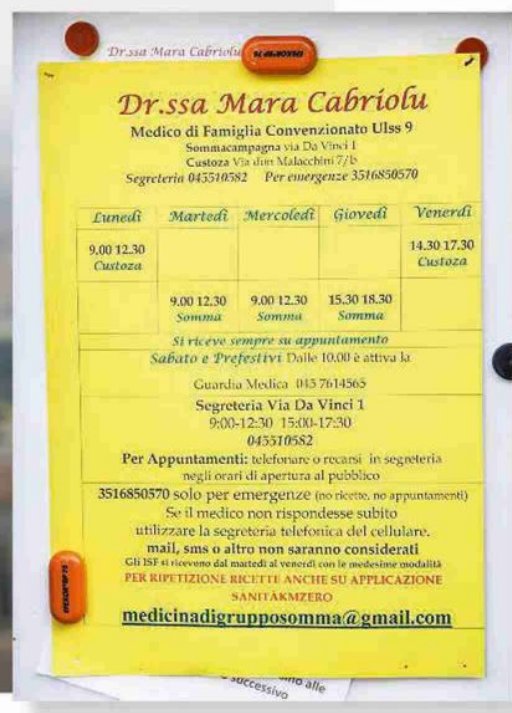 Dr.ssa Mara Cabriolu
Dr.ssa Mara Cabriolu
Medico di Famiglia Convenzionato Ulss 9
Sommacampagna via Da Vinci 1
Custoza Via don Malacchini 7/b
Segreteria 045510582 Per emergenze 3516850570
Lunedì Martedì Mercoledì Giovedì Venerdì
9.00 12.30 14.30 17.30
Custoza Custoza
9.00 12.30 9.00 12.30 15.30 18.30
Somma Somma Somma
Si riceve sempre su appuntamento
Sabato e Prefestivi Dalle 10.00 è attiva la
Guardia Medica 045 7614565
Segreteria Via Da Vinci 1
9:00-12:30 15:00-17:30
045510582
Per Appuntamenti: telefonare o recarsi in segreteria
negli orari di apertura al pubblico
3516850570 solo per emergenze (no ricette, no appuntamenti)
Se il medico non rispondesse subito
utilizzare la segreteria telefonica del cellulare.
mail, sms o altro non saranno considerati
Gli ISF si ricevono dal martedì al venerdì con le medesime modalità
PER RIPETIZIONE RICETTE ANCHE SU APPLICAZIONE
SANITÀKMZERO
medicinadigrupposomma@gmail.com
alle
successivo